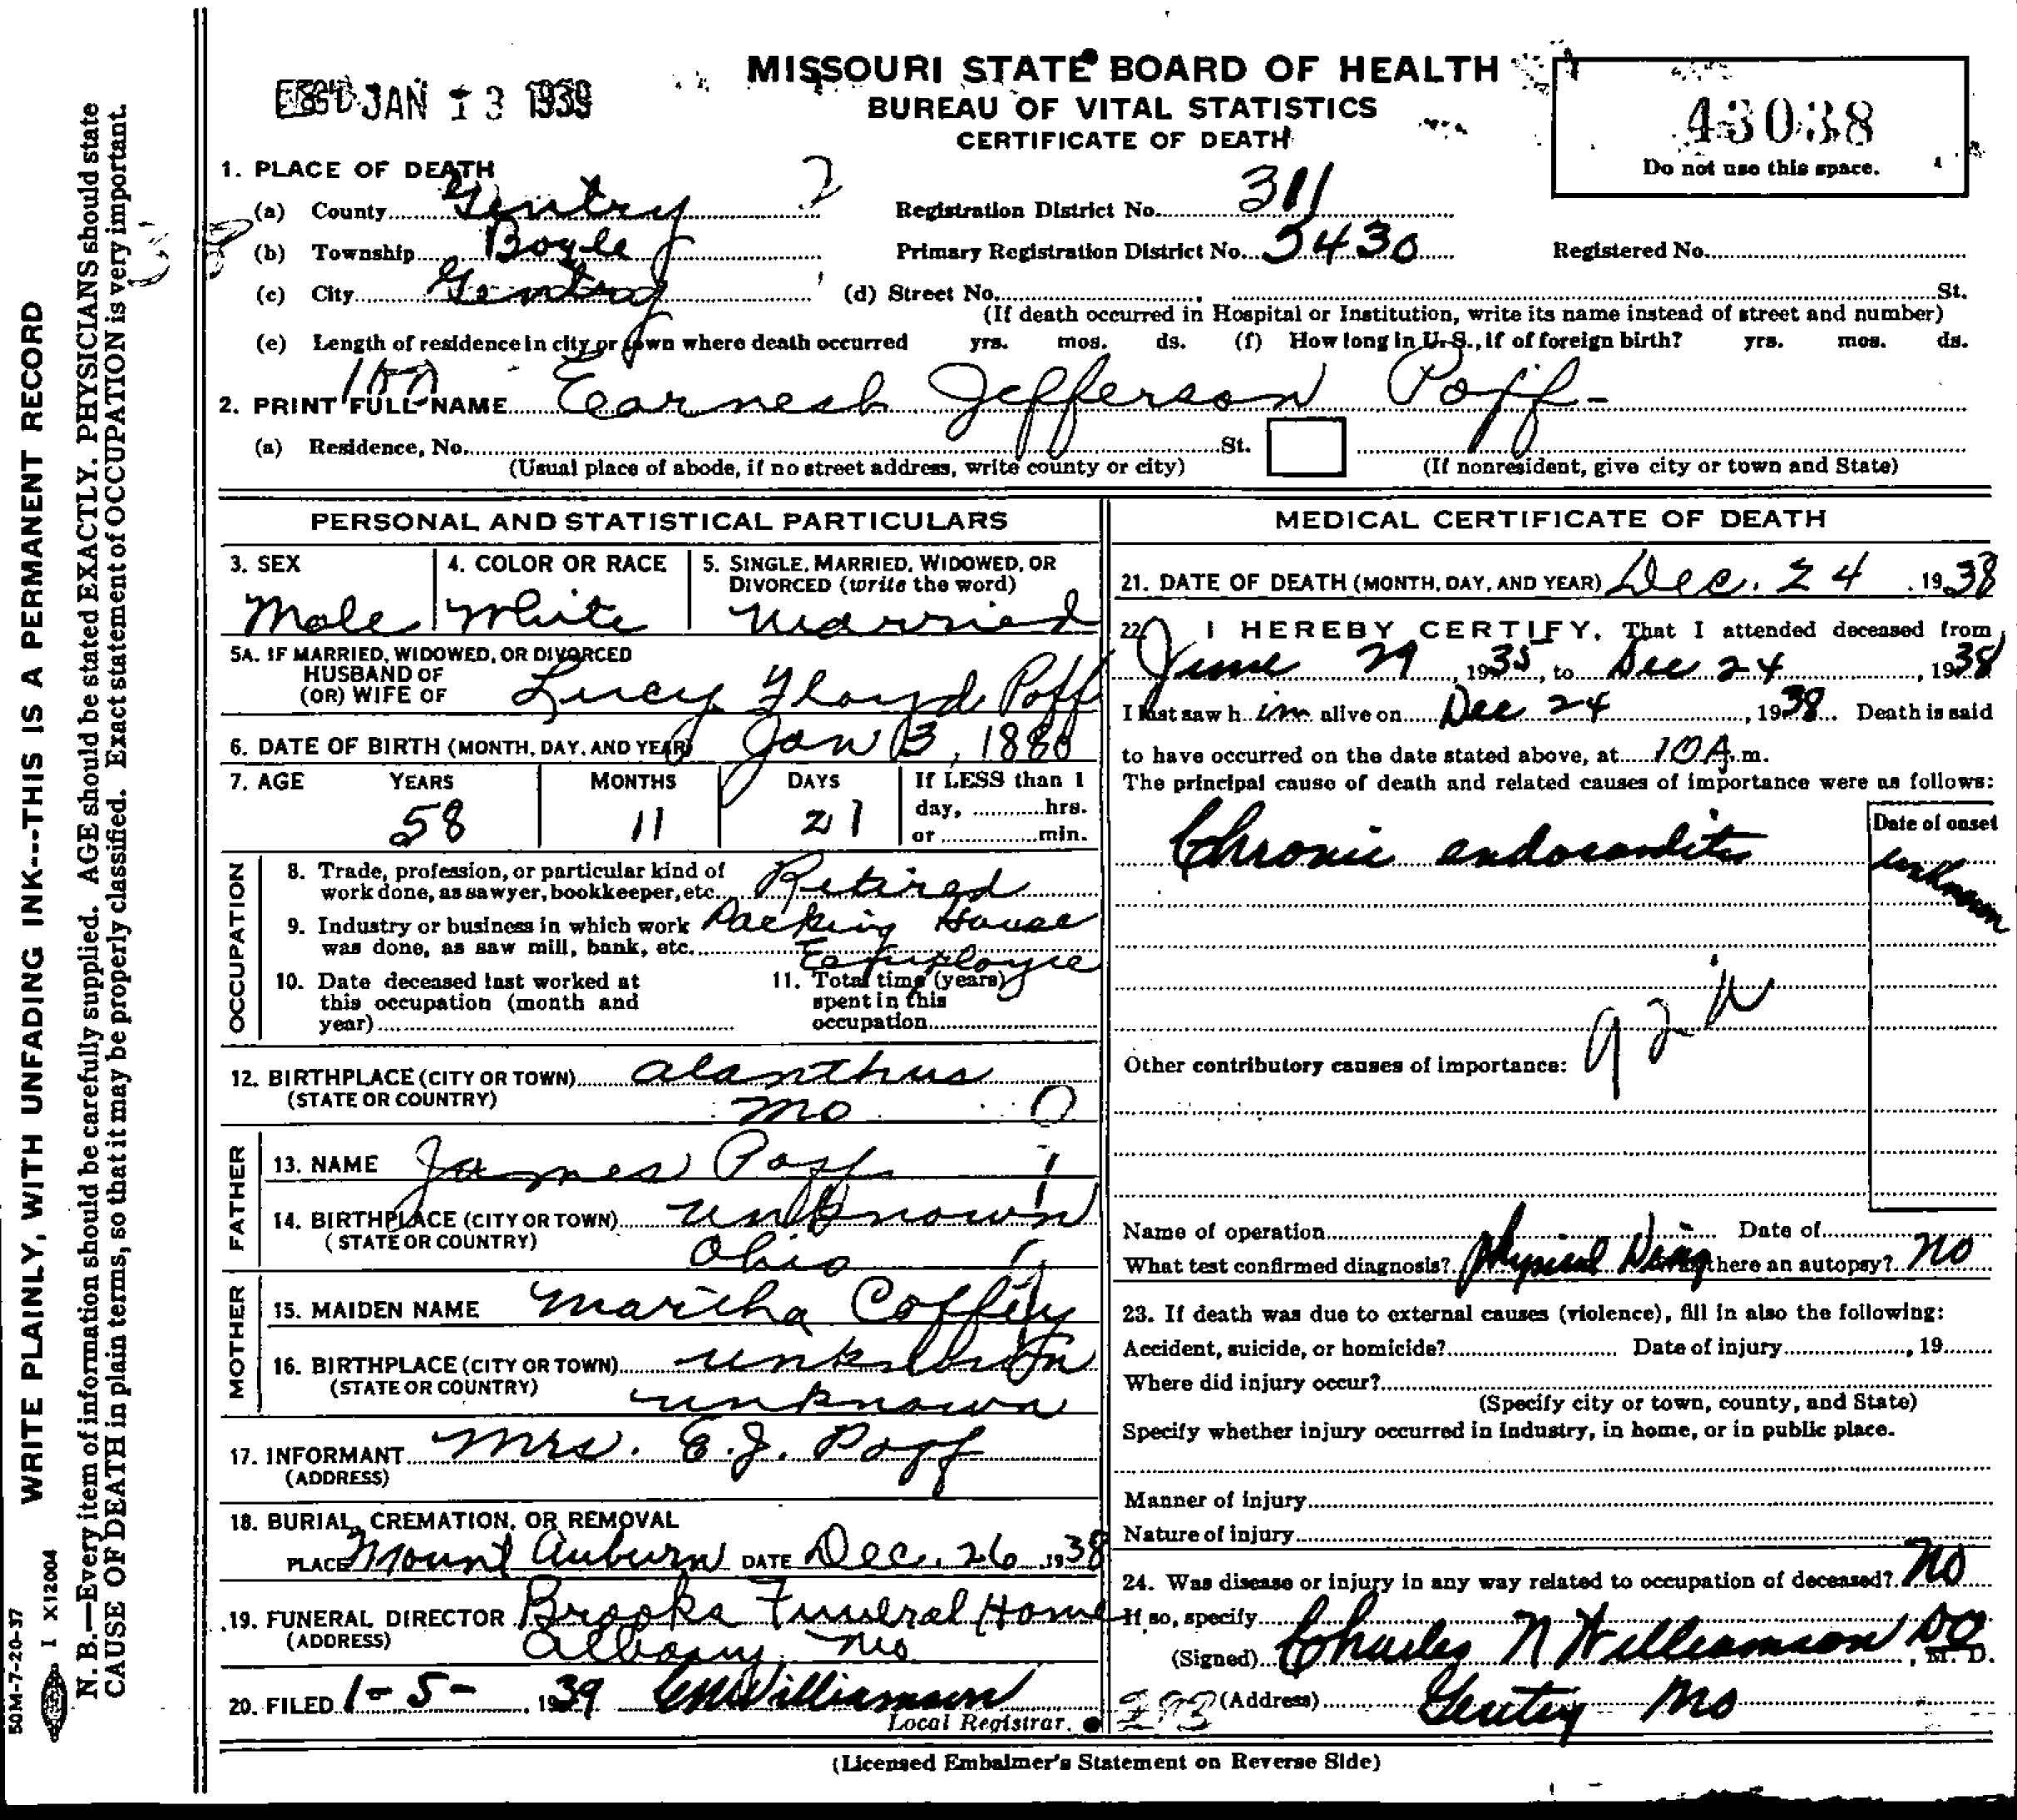 MISSOURI STATE BOARD OF HEALTH
BUREAU OF VITAL STATISTICS
CERTIFICATE OF DEATH
JAN 13 1939
43038
Do not use this space.
1. PLACE OF DEATH
(a) County Gentry 2
Registration District No. 311
(b) Township Boyle
Primary Registration District No. 5430 Registered No.
(c) City Gentry (d) Street No. St.
(If death occurred in Hospital or Institution, write its name instead of street and number)
(e) Length of residence in city or town where death occurred yrs. mos. ds. (f) How long in U.S., if of foreign birth? yrs. mos. ds.
2. PRINT FULL NAME Earnest Jefferson Poff
(a) Residence, No. St.
(Usual place of abode, if no street address, write county or city) (If nonresident, give city or town and State)
PERSONAL AND STATISTICAL PARTICULARS
3. SEX Male
4. COLOR OR RACE White
5. SINGLE, MARRIED, WIDOWED, OR DIVORCED (write the word) Married
5A. IF MARRIED, WIDOWED, OR DIVORCED
HUSBAND OF
(OR) WIFE OF Lucy Floyd Poff
6. DATE OF BIRTH (MONTH, DAY, AND YEAR) Jan 3, 1880
7. AGE YEARS MONTHS DAYS If LESS than 1
day, hrs.
or min.
58 11 21
OCCUPATION
8. Trade, profession, or particular kind of
work done, as sawyer, bookkeeper, etc. Retired
9. Industry or business in which work
was done, as saw mill, bank, etc. Packing House
Employee
10. Date deceased last worked at
this occupation (month and
year)
11. Total time (years)
spent in this
occupation
12. BIRTHPLACE (CITY OR TOWN) Alanthus
(STATE OR COUNTRY) Mo 0
FATHER
13. NAME James Poff
14. BIRTHPLACE (CITY OR TOWN) unknown
(STATE OR COUNTRY) Ohio
MOTHER
15. MAIDEN NAME Martha
16. BIRTHPLACE (CITY OR TOWN) unknown
(STATE OR COUNTRY) unknown
17. INFORMANT Mrs. E.J. Poff
(ADDRESS)
18. BURIAL, CREMATION, OR REMOVAL
PLACE Mount Auburn DATE Dec. 26 1938
19. FUNERAL DIRECTOR Brooks Funeral Home
(ADDRESS) Albany Mo
20. FILED 1-5- 1939 CN Williamson
Local Registrar.
MEDICAL CERTIFICATE OF DEATH
21. DATE OF DEATH (MONTH, DAY, AND YEAR) Dec. 24 1938
22. I HEREBY CERTIFY, That I attended deceased from
June 29, 1935, to Dec 24, 1938
I last saw him alive on Dec 24, 1938. Death is said
to have occurred on the date stated above, at 10 A. m.
The principal cause of death and related causes of importance were as follows:
Date of onset
Chronic endocarditis unknown
Other contributory causes of importance:
Name of operation Date of
What test confirmed diagnosis? Physical there an autopsy? No
23. If death was due to external causes (violence), fill in also the following:
Accident, suicide, or homicide? Date of injury , 19
Where did injury occur?
(Specify city or town, county, and State)
Specify whether injury occurred in industry, in home, or in public place.
Manner of injury
Nature of injury
24. Was disease or injury in any way related to occupation of deceased? No
If so, specify
(Signed) Charles N Williamson DO, M. D.
(Address) Gentry Mo
(Licensed Embalmer's Statement on Reverse Side)
WRITE PLAINLY, WITH UNFADING INK---THIS IS A PERMANENT RECORD
N. B.—Every item of information should be carefully supplied. AGE should be stated EXACTLY. PHYSICIANS should state
CAUSE OF DEATH in plain terms, so that it may be properly classified. Exact statement of OCCUPATION is very important.
50M-7-20-37
I X12004